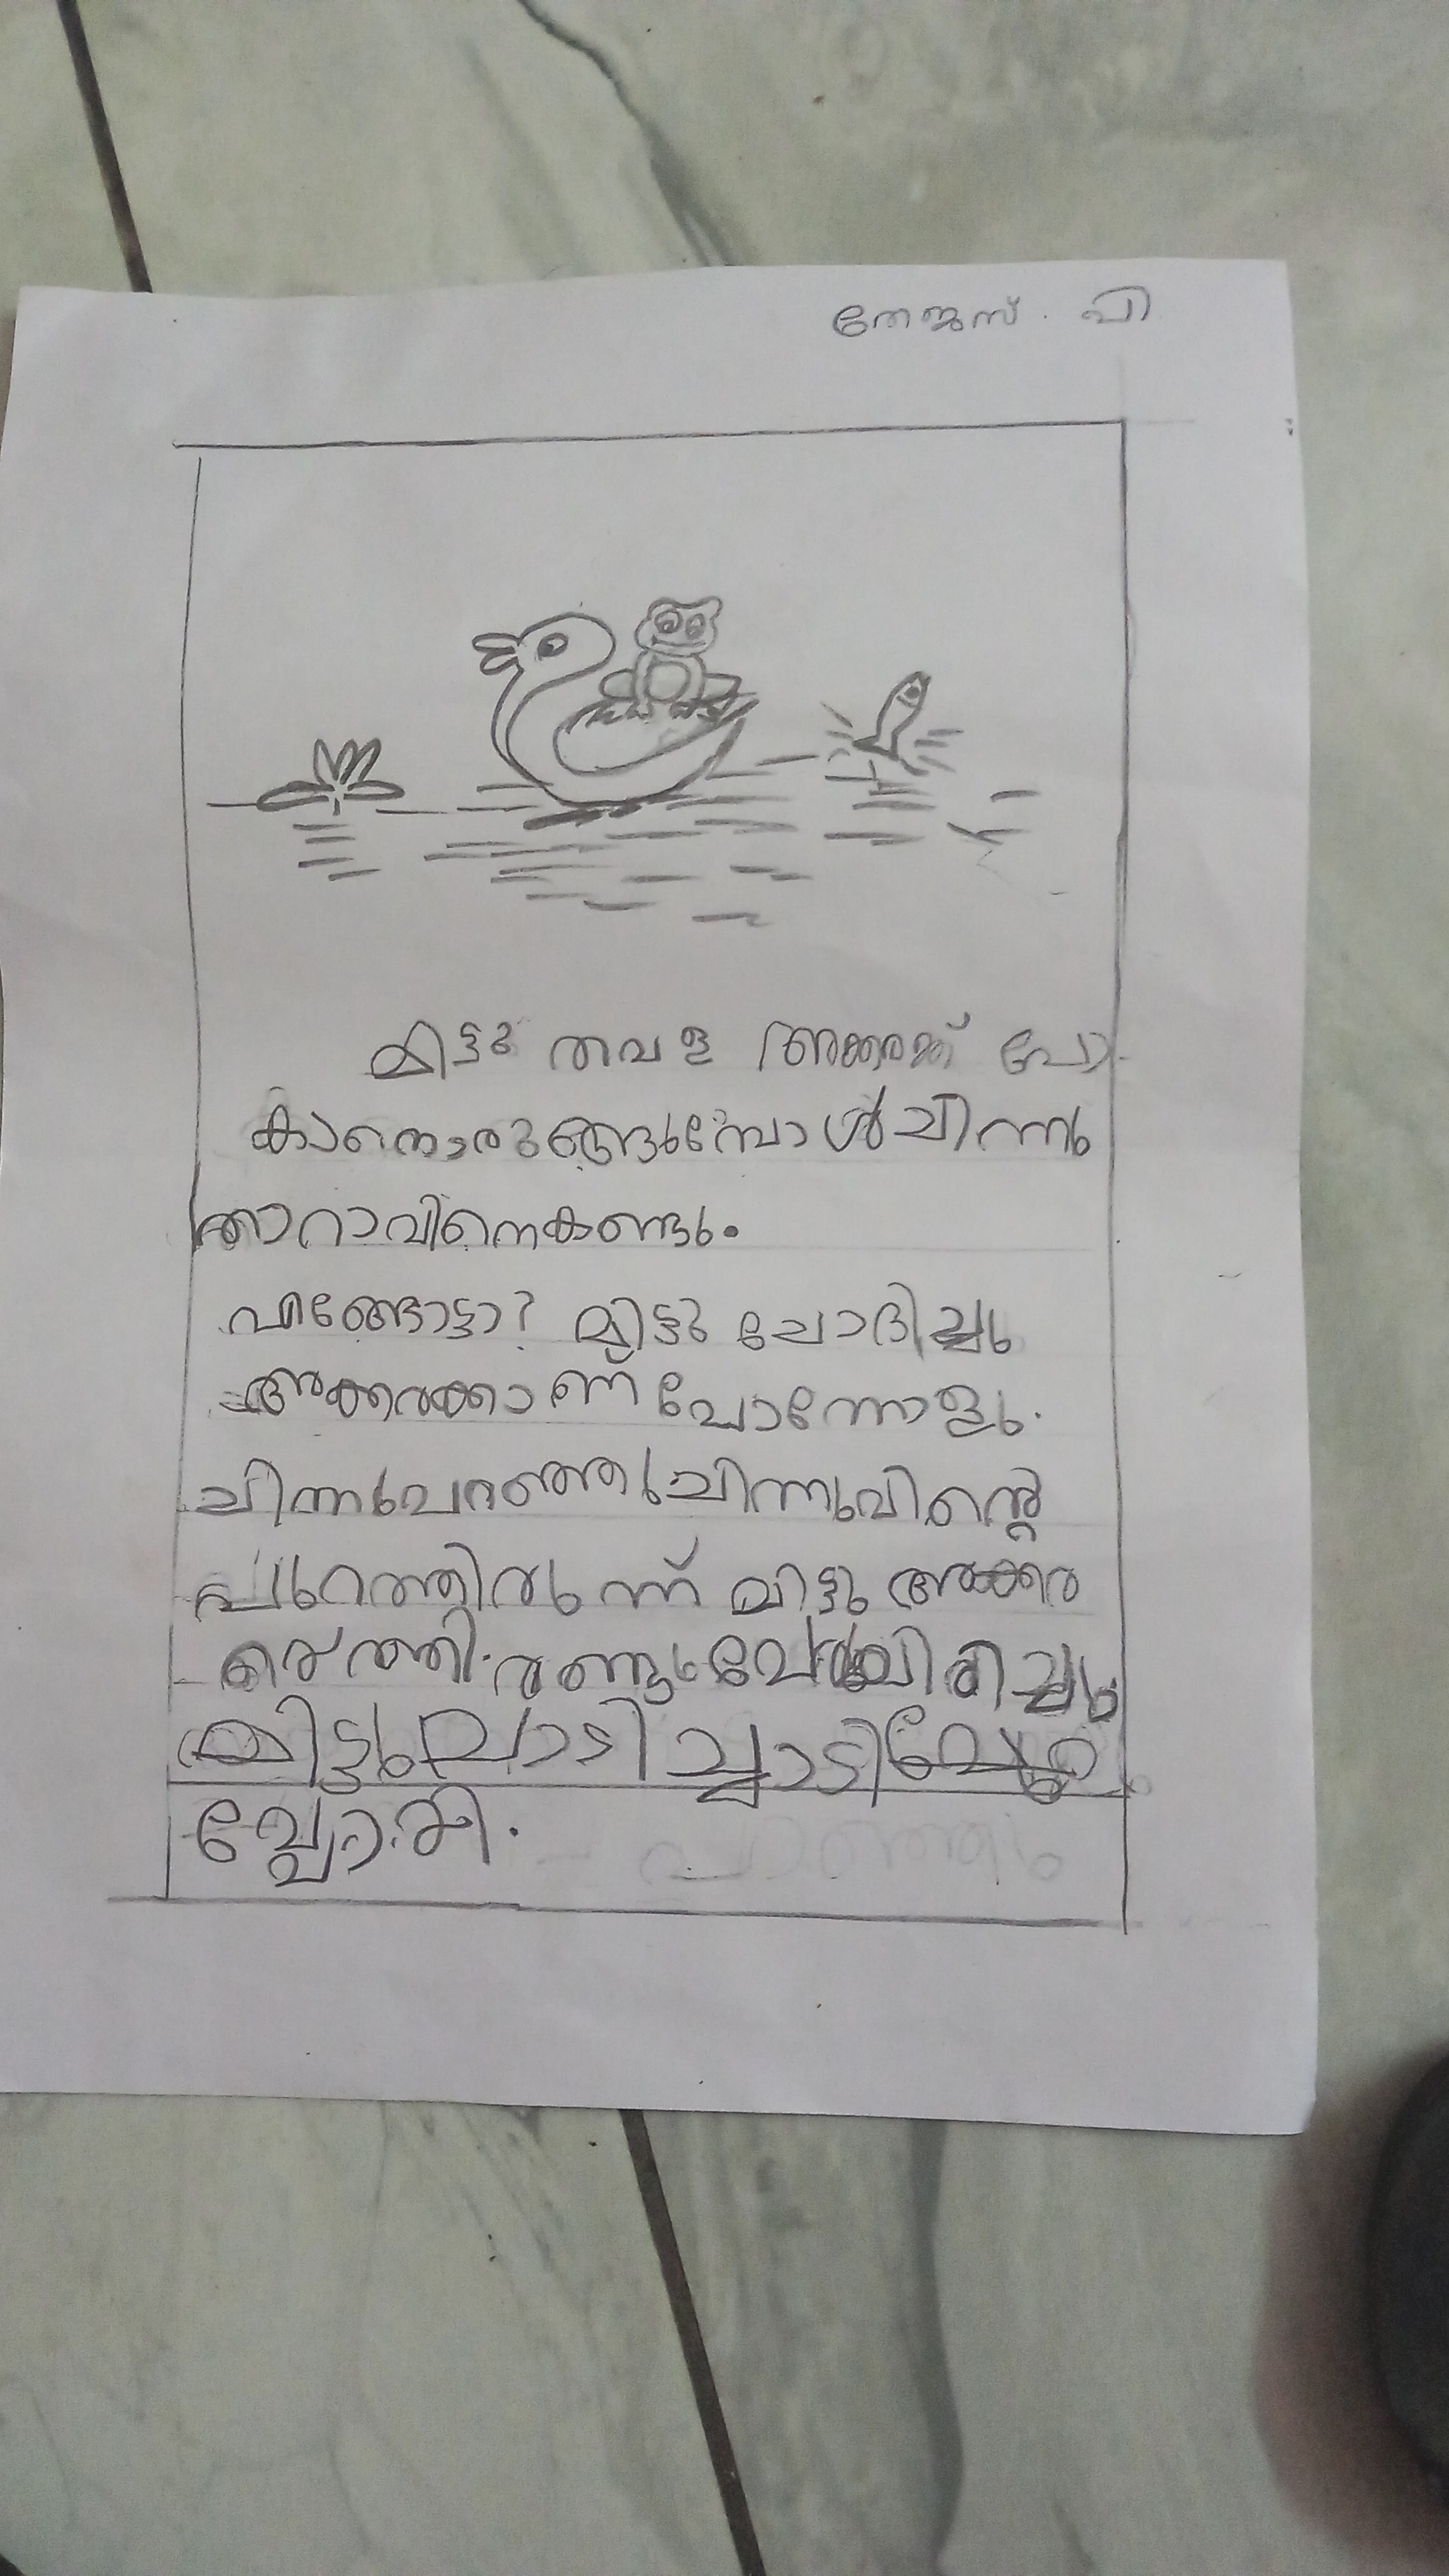 തേജസ്. പി
മിട്ടു തവള അക്കരക്ക് പോ
കാനൊരുങ്ങുമ്പോൾ ചിന്നു
താറാവിനെകണ്ടു.
എങ്ങോട്ടാ? മിട്ടു ചോദിച്ചു
അക്കരക്കാണ് പോന്നോളു.
ചിന്നുപറഞ്ഞുചിന്നുവിന്റെ
പുറത്തിരുന്ന് മിട്ടു അക്കര
എത്തി. രണ്ടുപേരും
മിട്ടുചാടി ച്ചാടി
പ്പോയി.